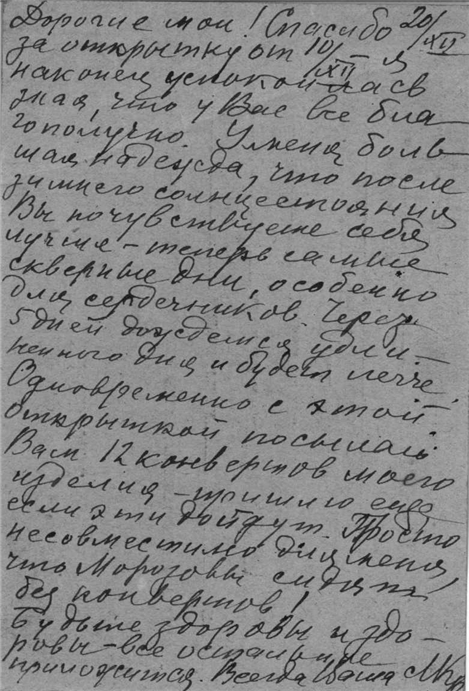 Дорогие мои! Спасибо 20/XII
за открытку от 10/XII я
наконец успокоилась
зная, что у Вас все бла-
гополучно. У меня боль-
шая надежда, что после
зимнего солнцестояния
Вы почувствуете себя
лучше - теперь самые
скверные дни, особенно
для сердечников. Через
5 дней дождемся удли-
ненного дня и будет легче.
Одновременно с этой
открыткой посылаю
Вам 12 конвертов моего
изделия - пришлю еще
если эти дойдут. Просто
несовместимо для меня,
что Морозовы сидят
без конвертов!
Будьте здоровы и здо-
ровы - все остальное
приложится. Всегда Ваша